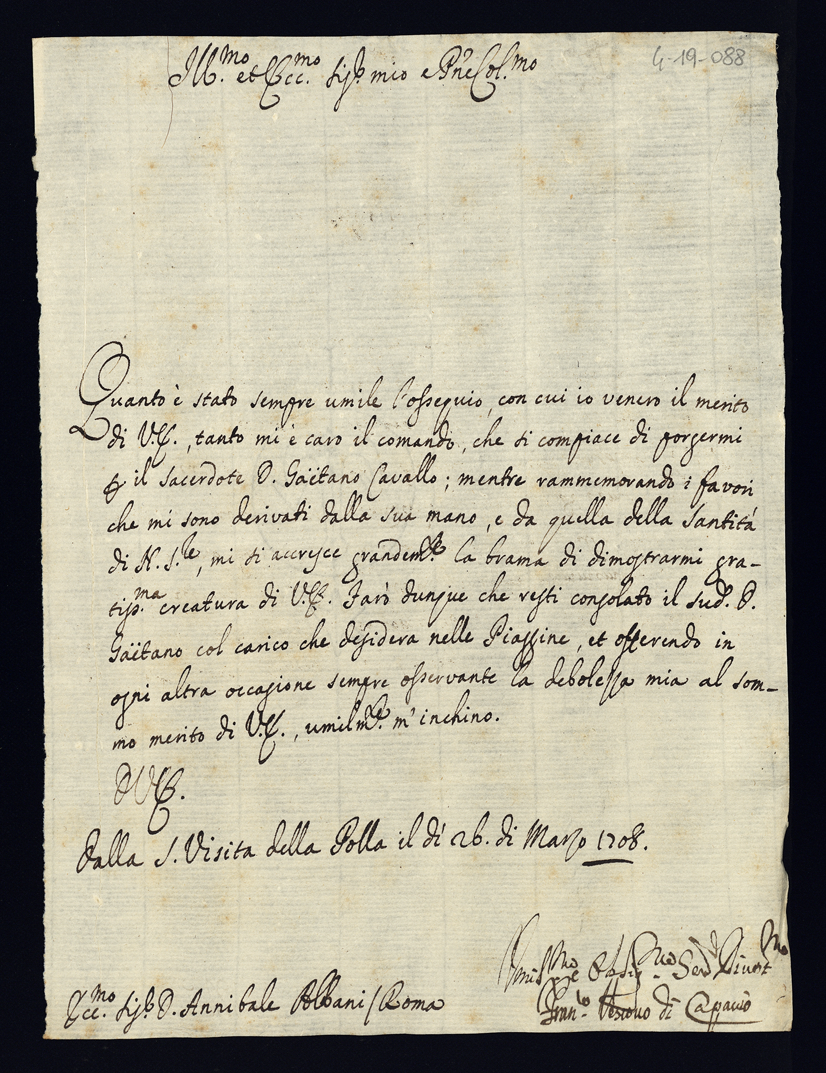 4-19-088
Ill.mo et Ecc.mo Sig.r mio e P.ne Col.mo
Quanto è stato sempre umile l'ossequio, con cui io venero il merito
di V.E., tanto mi è caro il comando, che si compiace di porgermi
p il sacerdote D. Gaëtano Cavallo; mentre rammemorando i favori
che mi sono derivati dalla sua mano, e da quella della Santità
di N. S.re, mi si accresce grandem.te la brama di dimostrarmi gra-
tiss.ma creatura di V.E. Farò dunque che resti consolato il sud.o D.
Gaëtano col carico che desidera nelle Piaggine, et offerendo in
ogni altra occasione sempre osservante la debolezza mia al som-
mo merito di V.E., umilm.te m'inchino.
D V E.
Dalla S. Visita della Polla il dì 26. di Marzo 1708.
Ecc.mo Sig.r D. Annibale Albani / Roma
Umiliss.mo e Oblig.mo Ser. Divot.mo
Fran.co Vescovo di Capaccio